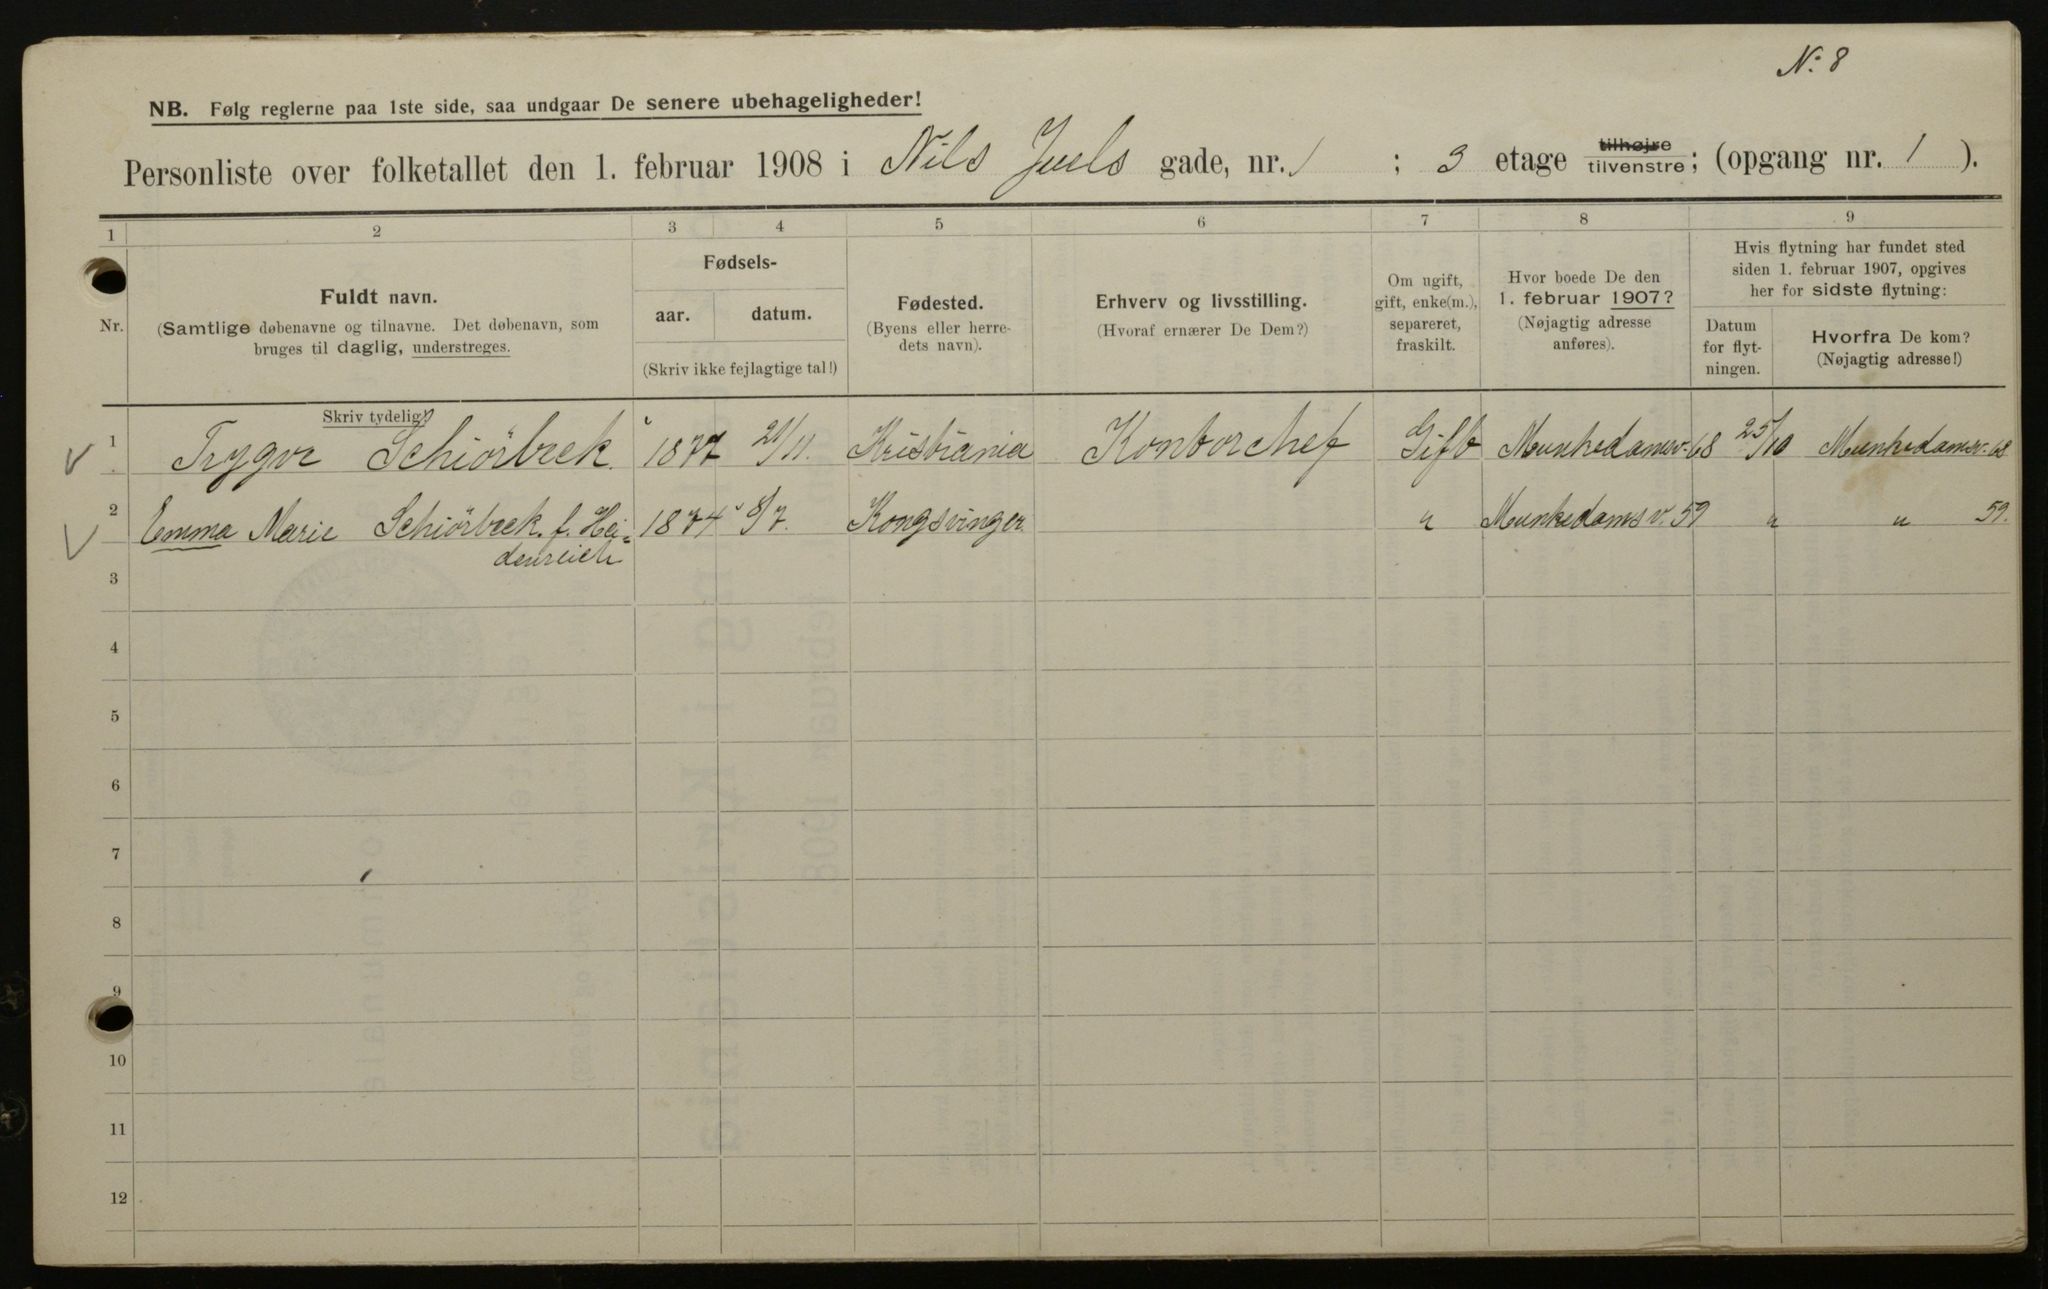 N: 8
NB. Følg reglerne paa 1ste side, saa undgaar De senere ubehageligheder!
Personliste over folketallet den 1. februar 1908 i Nils Juels gade, nr. 1 ; 3 etage tilhøjre tilvenstre; (opgang nr. 1 ).
1 2 3 4 5 6 7 8 9
Nr.
Fuldt navn.
(Samtlige døbenavne og tilnavne. Det døbenavn, som
bruges til daglig, understreges.
Fødsels-
aar. datum.
(Skriv ikke fejlagtige tal!)
Fødested.
(Byens eller herre-
dets navn).
Erhverv og livsstilling.
(Hvoraf ernærer De Dem?)
Om ugift,
gift, enke(m.),
separeret,
fraskilt.
Hvor boede De den
1. februar 1907?
(Nøjagtig adresse
anføres).
Hvis flytning har fundet sted
siden 1. februar 1907, opgives
her for sidste flytning:
Datum
for flyt-
ningen.
Hvorfra De kom?
(Nøjagtig adresse!)
Skriv tydelig!
1 Trygve Schiörbeck. 1877 21/11. Kristiania Kontorchef Gift Munkedamsv. 68 25/10 Munkedamsv. 68
2 Emma Marie Schiörbeck. f. Hei- 1874 8/7. Kongsvinger " Munkedamsv. 59 " " 59.
denreich
3
4
5
6
7
8
9
10
11
12